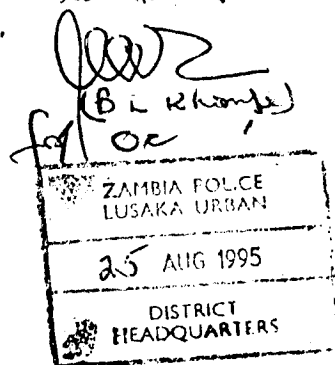 (B L Khonje)
for OC
ZAMBIA POLICE
LUSAKA URBAN
25 AUG 1995
DISTRICT
HEADQUARTERS